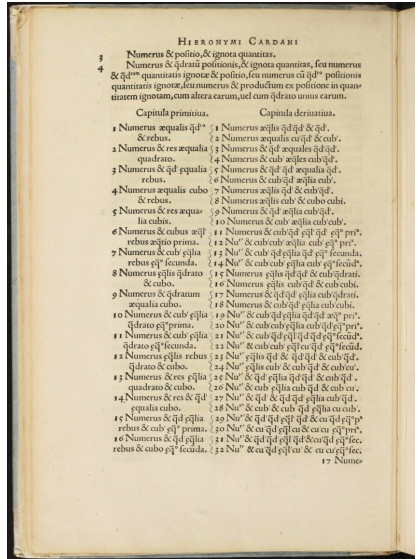 HIERONYMI CARDANI
3 Numerus & positio, & ignota quantitas.
4 Numerus & q̃dratũ positionis, & ignota quantitas, seu numerus
& q̃d^um quantitatis ignotæ & positio, seu numerus cũ q̃d^to positionis
quantitatis ignotæ, seu numerus & productum ex positione in quan-
titatem ignotam, cum altera earum, uel cum q̃drato unius earum.
Capitula primitiua.
1 Numerus æqualis q̃d^to
& rebus.
2 Numerus & res æqualia
quadrato.
3 Numerus & q̃d' equalia
rebus.
4 Numerus æqualis cubo
& rebus.
5 Numerus & res æqua-
lia cubis.
6 Numerus & cubus æq̃l'
rebus æq̃tio prima.
7 Numerus & cub' ęq̃lia
rebus ęq̃° secunda.
8 Numerus ęq̃lis q̃drato
& cubo.
9 Numerus & q̃dratum
æqualia cubo.
10 Numerus & cub' ęq̃lia
q̃drato ęq̃° prima.
11 Numerus & cub' ęq̃lia
q̃drato ęq̃° secunda.
12 Numerus ęq̃lis rebus
q̃drato & cubo.
13 Numerus & res ęq̃lia
quadrato & cubo.
14 Numerus & res & q̃d'
ęqualia cubo.
15 Numerus & q̃d ęq̃lia
rebus & cub' ęq̃° prima.
16 Numerus & q̃d ęq̃lia
rebus & cubo ęq̃° secũda.
Capitula deriuatiua.
1 Numerus æq̃lis q̃d' q̃d' & q̃d'.
2 Numerus æqualis cu' q̃d' & cub'.
3 Numerus & q̃d' æquales q̃d' q̃d'.
4 Numerus & cub' æq̃les cub' q̃d'.
5 Numerus & q̃d' q̃d' æqualia q̃d'.
6 Numerus & cub' q̃d' æq̃lia cub'.
7 Numerus æq̃lis q̃d' & cub' q̃d'.
8 Numerus æq̃lis cub' & cubo cubi.
9 Numerus & q̃d' æq̃lia cub' q̃d'.
10 Numerus & cub' æq̃lia cub' cub'.
11 Numerus & cub' q̃d' ęq̃l' q̃d' ęq̃° pri^a.
12 Nu^us & cub' cub' æq̃lia cub' ęq̃° pri^a.
13 Nu^us & cub' q̃d' ęq̃lia q̃d' ęq̃° secunda.
14 Nu^us & cub' cub' ęq̃lia cub' ęq̃° secũd^a.
15 Numerus ęq̃lis q̃d' q̃d' & cub' q̃drati.
16 Numerus ęq̃lis cub' q̃d' & cub' cubi.
17 Numerus & q̃d' q̃d' ęq̃lia cub' q̃drati.
18 Numerus & cub' q̃d' ęq̃lia cub' cubi.
19 Nu^us & cub' q̃d' ęq̃lia q̃d' q̃d' æq̃° pri^a.
20 Nu^us & cub' cub' ęq̃lia cub' q̃d' ęq̃° pri^a.
21 Nu^us & cub' q̃d' ęq̃l' q̃d' q̃d' ęq̃° secũd^a.
22 Nu^us & cub' cub' ęq̃l' cu' q̃d' ęq̃° secũd.
23 Nu^us ęq̃lis q̃d' & q̃d' q̃d' & cub' q̃d'.
24 Nu^us ęq̃lis cub' & cub' q̃d' & cub' cu'.
25 Nu^us & q̃d' ęq̃lia q̃d' q̃d' & cub' q̃d'.
26 Nu^us & cub' ęq̃lia cub' q̃d' & cub cu'.
27 Nu^us & q̃d' & q̃d' q̃d' ęq̃lia cub' q̃d'.
28 Nu^us & cub' & cub q̃d' ęq̃lia cu cub'.
29 Nu^us & q̃d' q̃d' ęq̃l' q̃d' & cu q̃d' ęq̃° p^a
30 Nu^us & cu q̃d' ęq̃l' cu & cu' cu' ęq̃° pri^a.
31 Nu^us & q̃d' q̃d' ęq̃l' q̃d' & cu' q̃d' ęq̃° sec.
32 Nu^us & cu q̃d' ęq̃l' cu' & cu' cu' ęq̃° sec.
17 Nume-